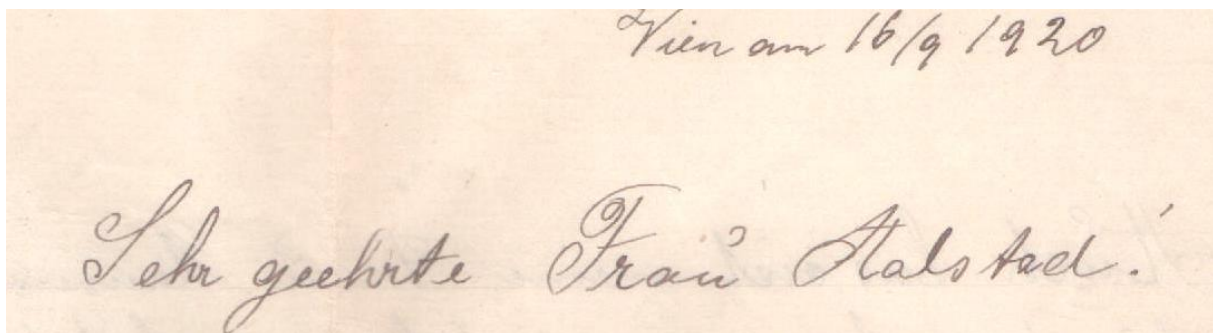 Wien am 16/9 1920
Sehr geehrte Frau Halstad!